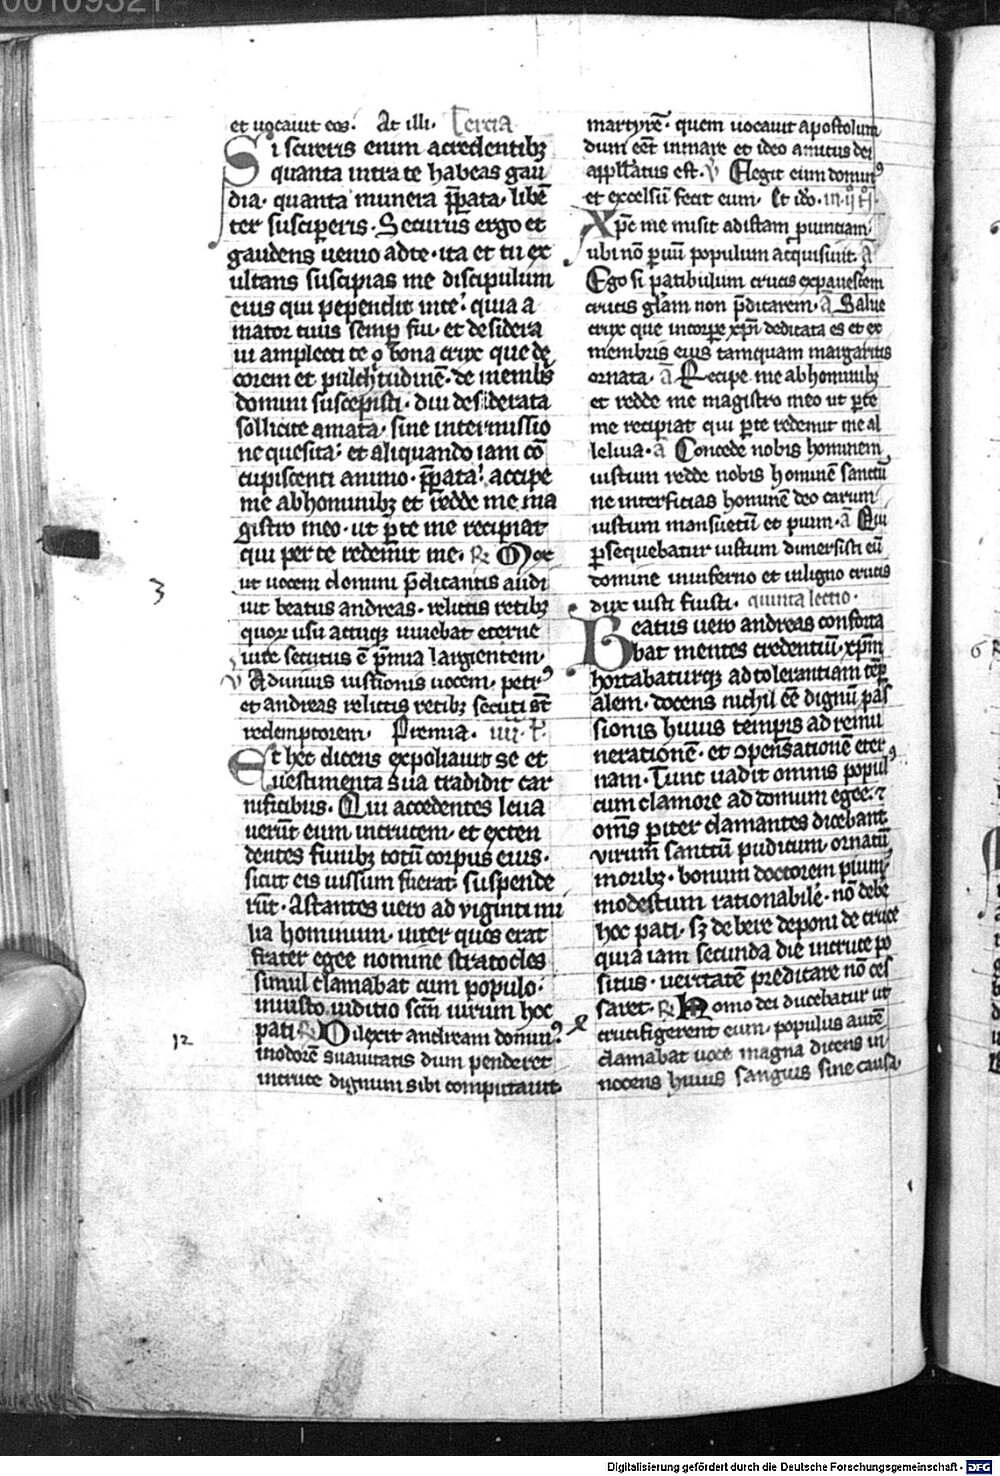 00109321
et uocauit eos. At illi. Tercia
Si scireris enim a credentibꝫ
quanta intra te habeas gau
dia. quanta munera p̄pata. libē
ter susciperis. Securus ergo et
gaudens uenio ad te. ita et tu ex
ultans suscipias me discipulum
eius qui pependit in te. quia a
mator tuus semꝑ fui. et desidera
ui amplecti te o bona crux que de
corem et pulchritudinē. de membris
domini suscepisti. diu desiderata
sollicite amata. sine intermissio
ne quesita. et aliquando iam cō
cupiscenti animo. p̄pata. accipe
me ab hominibꝫ et redde me ma
gistro meo. ut per te me recipiat
qui per te redemit me. ℟ Mox
ut uocem domini p̄dicantis audi
uit beatus andreas. relictis retibꝫ
quoꝝ usu actuqꝫ uiuebat eterne
uite secutus ē p̄mia largientem.
v Ad unius iussionis uocem. petrꝰ
et andreas relictis retibꝫ secuti st̄
redemptorem. Premia. iiii. ł.
Et hec dicens expoliauit se et
uestimenta sua tradidit car
nificibus. Qui accedentes leua
uerūt eum in crucem. et exten
dentes funibꝫ totū corpus eius.
sicut eis iussum fuerat suspende
rūt. Astantes uero ad uiginti mi
lia hominum. inter quos erat
frater egee nomine stratocles
simul clamabat cum populo.
iniusto iuditio scm̄ uirum hoc
pati. ℟ Dilexit andream dominꝰ
in odorē suauitatis dum penderet
in cruce dignum sibi computauit
martyrē. quem uocauit apostolum
dum eēt in mare et ideo amicus dei
appll̄atus est. v Elegit eum dominꝰ
et excelsū fecit eum.
Xp̄c me misit ad istam ꝓuinciam
ubi nō paruū populum acquisiuit. A
Ego si patibulum crucis expauescem
crucis glām non p̄dicarem. A Salue
crux que in corpe xp̄i dedicata es et ex
membris eius tamquam margaritis
ornata. a Recipe me ab hominibꝫ
et redde me magistro meo ut per te
me recipiat qui per te redemit me al
leluia. a Concede nobis hominem
iustum redde nobis hominē sanctū
ne interficias hominē deo carum
iustum mansuetū et pium. a Qui
ꝑsequebatur iustum dimersisti eū
domine in inferno et in ligno crucis
dux iusti fuisti. quinta lectio.
Beatus uero andreas conforta
bat mentes credentiū. xp̄m
hortabaturqꝫ ad tolerantiam tēp
alem. docens nichil eē dignū pas
sionis huius temporis ad remu
nerationē. et ꝯpensationē eter
nam. Tunc uadit omnis populꝰ
cum clamore ad domum egee. ⁊
om̄s pariter clamantes dicebant
virum sanctū pudicum. ornatū
moribꝫ. bonum doctorem pium.
modestum rationabilē. nō debē
hoc pati. sꝫ debere deponi de cruce
quia iam secunda die in cruce po
situs. ueritatē predicare nō ces
saret. ℟ Homo dei ducebatur ut
crucifigerent eum. populus autē
clamabat uoce magna dicens in
nocens huius sanguis sine causa
3
12
Digitalisierung gefördert durch die Deutsche Forschungsgemeinschaft - DFG